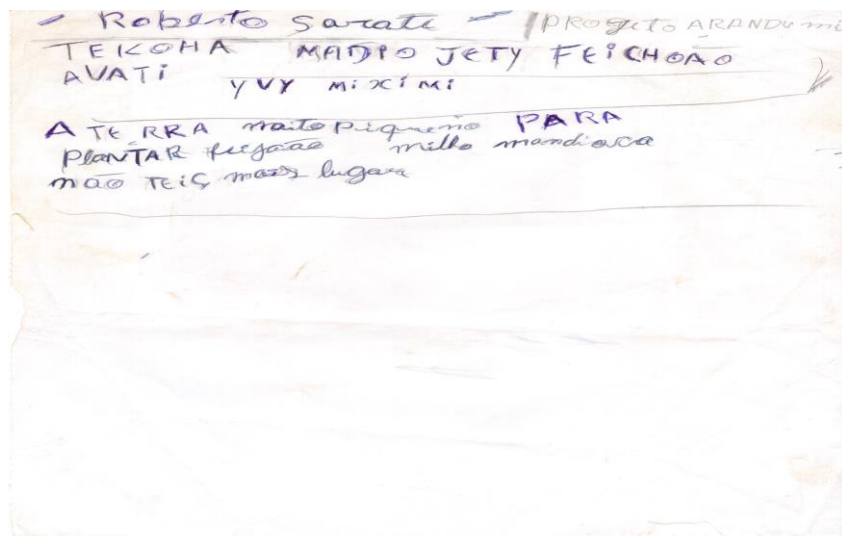 - Roberto Sarate - PROJETO ARANDU mi
TEKOHA MADIO JETY FEICHOAO
AVATI
YVY MiXÍMi
A TERRA maito piqueno PARA
PlanTAR feijaão milho mandioca
mão TEiÇ mais lugara